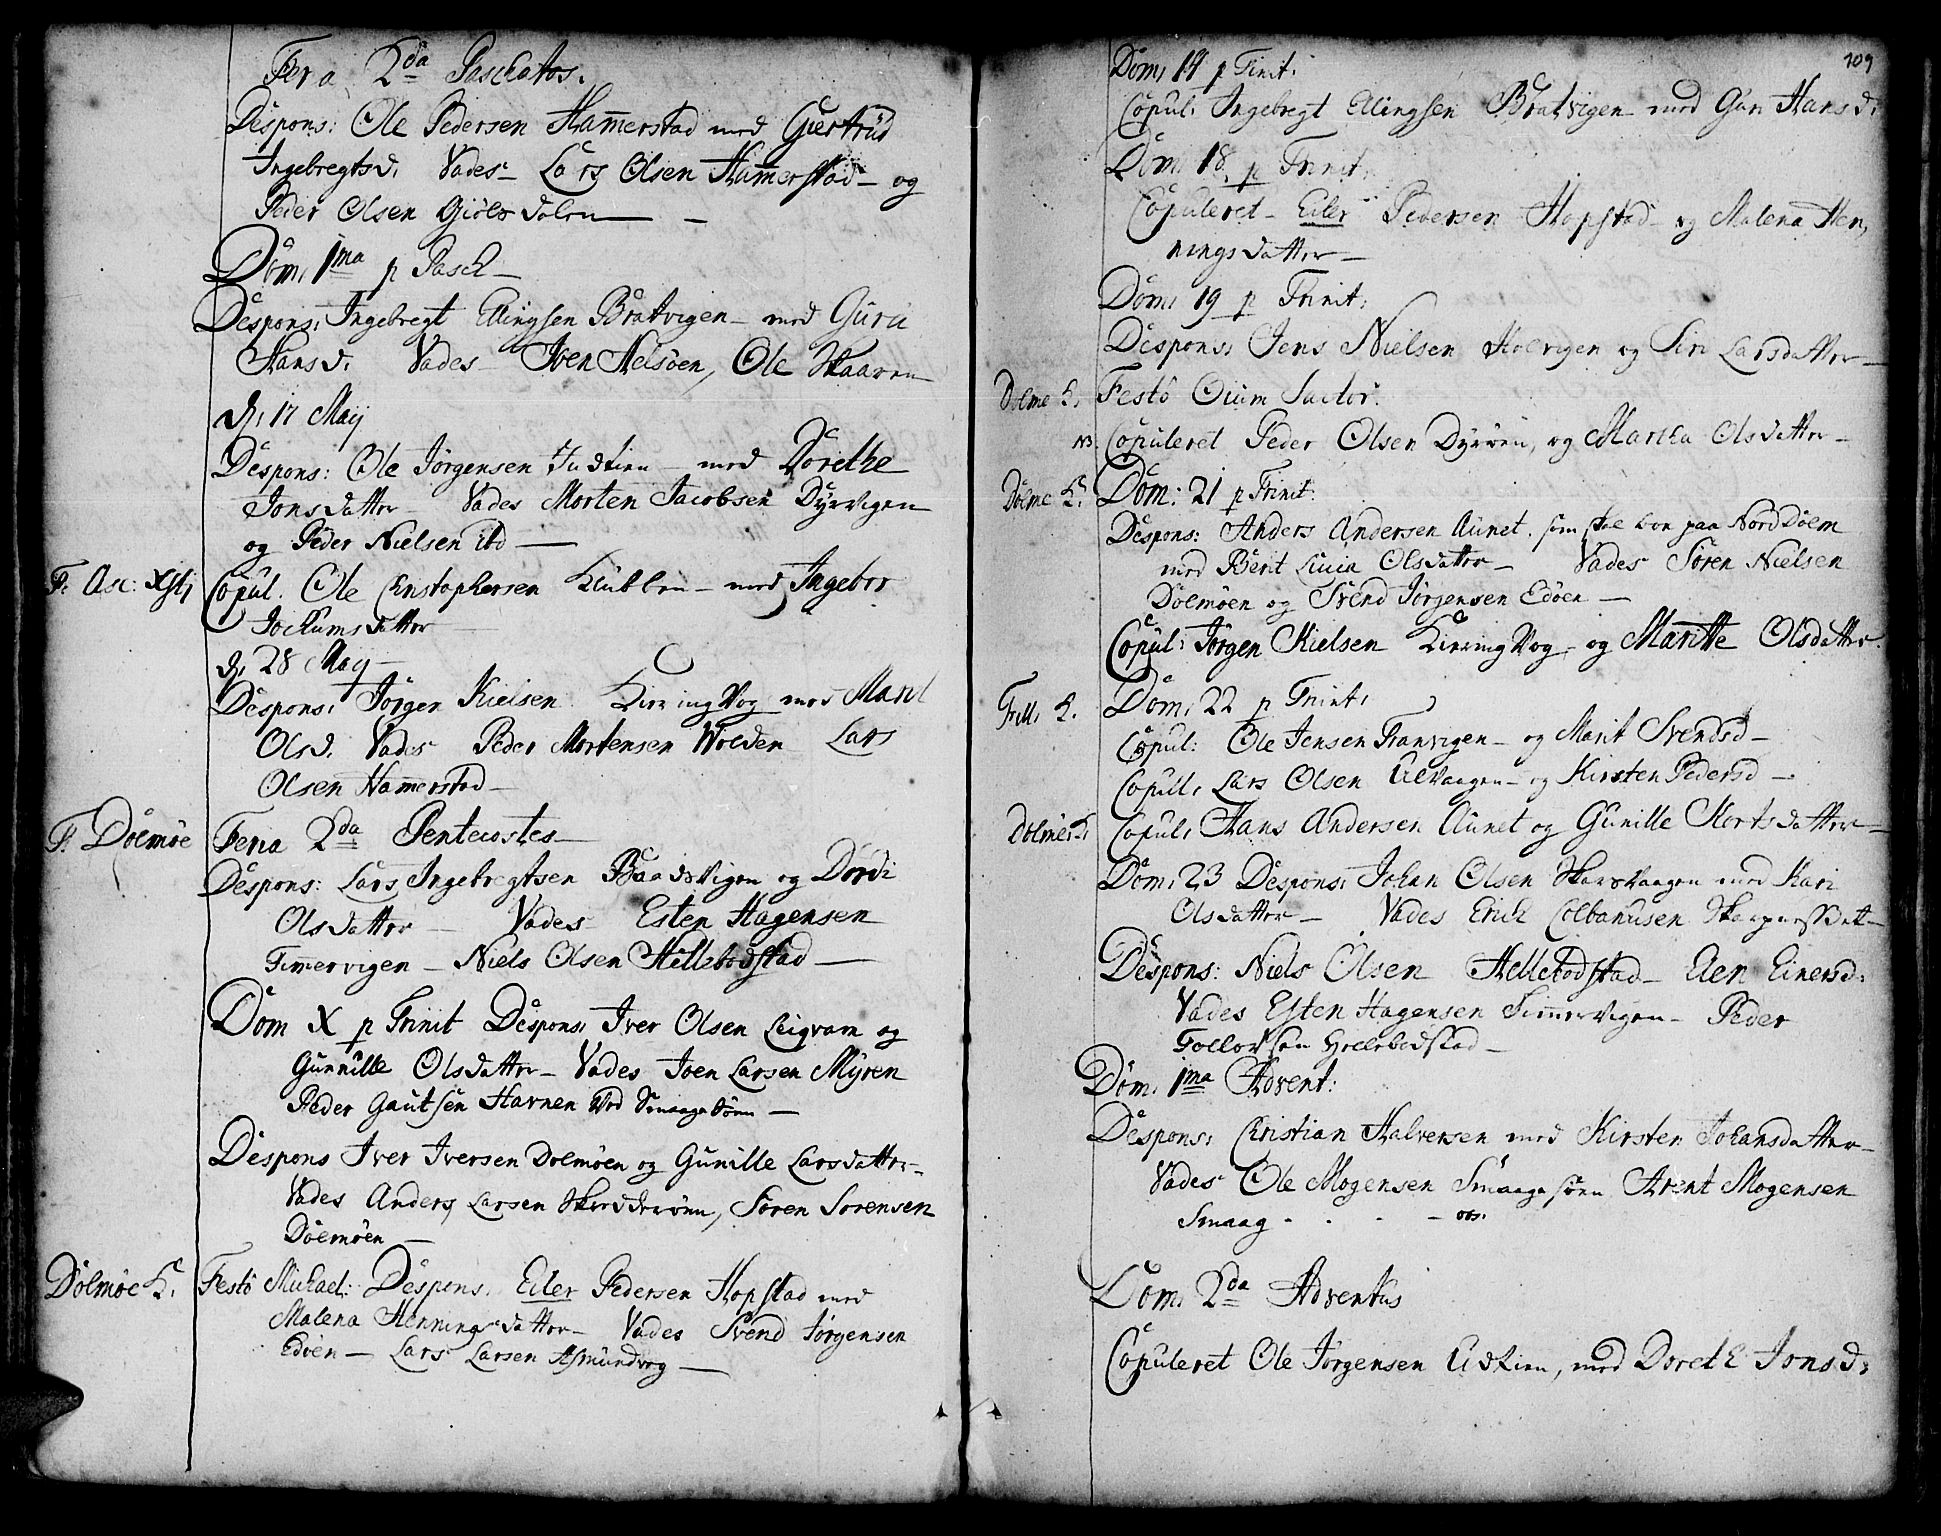 Fera 2da Paschatos.
Despons: Ole Pedersen Hamerstad med Giertrud
Ingebregtsd: Vades Lars Olsen Hamerstad og
Peder Olsen
Dom: 1ma p Pasch
Despons: Ingebregt Ellingsen Bratvigen med Guru
Hansd: Vades Iven Helsöen, Ole Skaaren
d: 17 Maij
Despons: Ole Jörgensen med Dorethe
Jonsdatter Vades Morten Jacobsen Dyrvigen
og Peder Nielsen ibd
F. Asc: Xstj Copul. Ole Christophersen Kubben med Ingebor
Jochumsdatter
d: 28 Maij
Despons: Jörgen Kielsen KierringVog med Marit
Olsd. Vades Peder Mortensen Wolden Lars
Olsen Hamerstad
F. Dolmöe Feria 2da Pentecostes
Despons: Lars Ingebregtsen BaadsVigen og Dordi
Olsdatter Vades Esten Hagensen
Timervigen Niels Olsen Hellebodstad
Dom X p Trinit Despons: Iver Olsen Leigvam og
Gunnille Olsdatter Vades Joen Larsen Myren
Peder Gautsen Havnen Ved
Despons Iver Iversen Dolmöen og Gunille Larsdatter
Vades Anders Larsen Sören Sorensen
Dolmöen
Dolmöe K. Festo Michael: Despons. Eiler Pedersen Hopstad med
Malena Henningsdatter Vades Svend Jörgensen
Edöen Lars Larsen Asmundvog
109
Dom: p Trinit:
Copul: Ingebregt Ellingsen Bratvigen med Guru Hansd:
Dom: 18. p Trinit:
Copuleret Eiler Pedersen Hopstad og Malena Hen,
ningsdatter
Dom: 19 p Trinit:
Despons: Jens Nielsen Holvigen og Siri Larsdatter
Dolme K. Festo Oium Sanctor:
NB. Copuleret Peder Olsen Dyröen, og Martha Olsdatter
Dolme K. Dom: 21 p Trinit:
Despons: Anders Andersen Aunet. som skal boe paa NordDolm
med Berit Lucia Olsdatter Vades Sören Nielsen
Dolmöen og Svend Jörgensen Edöen
Copul: Jörgen Kielsen KierringVog og Maritte Olsdatter.
Frill: K. Dom: 22 p Trinit:
Copul: Ole Jensen Tranvigen og Marit Svendsd
Copul: Lars Olsen Ulvaagen og Kirsten Pedersd
Dolme K. Copul: Hans Andersen Aunet og Gunille Mortsdatter
Dom: 23 Despons: Johan Olsen Skarsvaagen med Kari
Olsdatter Vades Erich Colbanusen
Despons: Niels Olsen Hellebodstad Elen Einersd:
Vades Esten Hagensen Timmervigen Peder
Hellebodstad
Dom: 1ma Advent:
Despons: Christian Halversen med Kirsten Johansdatter
Vades Ole Mogensen Arent Mogensen
Smaag
Dom: 2da Adventus
Copuleret Ole Jörgensen Udtien, med Doreth Jonsd: